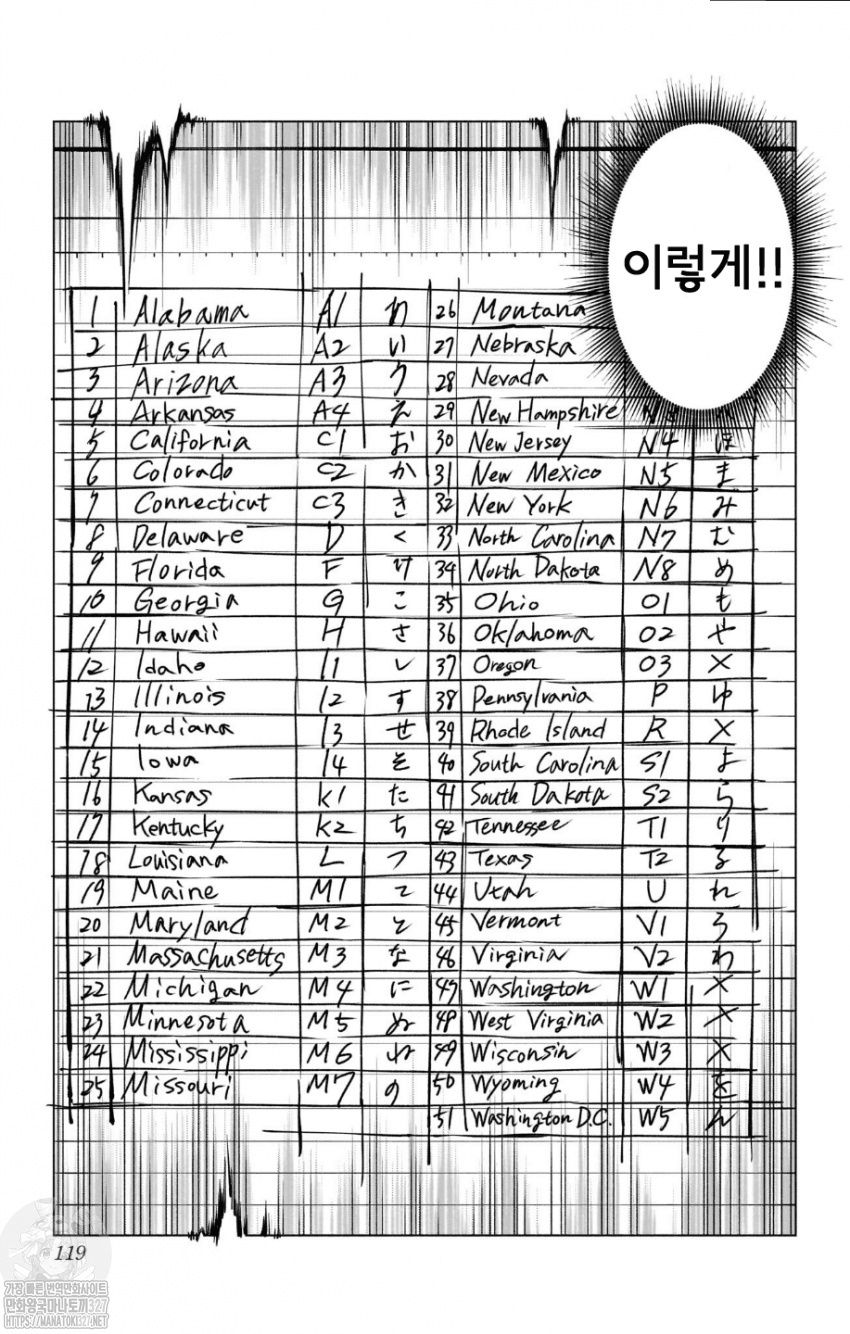 이렇게!!
1 Alabama A1 26 Montana
2 Alaska A2 い 27 Nebraska
3 Arizona A3 う 28 Nevada
4 Arkansas A4 え 29 New Hampshire
5 California C1 お 30 New Jersey N4 ほ
6 Colorado C2 か 31 New Mexico N5 ま
7 Connecticut C3 き 32 New York N6 み
8 Delaware D く 33 North Carolina N7 む
9 Florida F け 34 North Dakota N8 め
10 Georgia G こ 35 Ohio O1 も
11 Hawaii H さ 36 Oklahoma O2 や
12 Idaho I1 し 37 Oregon O3 ×
13 Illinois I2 す 38 Pennsylvania P ゆ
14 Indiana I3 せ 39 Rhode Island R ×
15 Iowa I4 そ 40 South Carolina S1 よ
16 Kansas K1 た 41 South Dakota S2 ら
17 Kentucky K2 ち 42 Tennessee T1 り
18 Louisiana L つ 43 Texas T2 る
19 Maine M1 て 44 Utah U れ
20 Maryland M2 と 45 Vermont V1 ろ
21 Massachusetts M3 な 46 Virginia V2 わ
22 Michigan M4 に 47 Washington W1 ×
23 Minnesota M5 ぬ 48 West Virginia W2 ×
24 Mississippi M6 ね 49 Wisconsin W3 ×
25 Missouri M7 の 50 Wyoming W4 を
51 Washington D.C. W5 ん
119
가장 빠른 번역만화사이트
만화왕국마나토끼327
HTTPS://MANATOKI327.NET